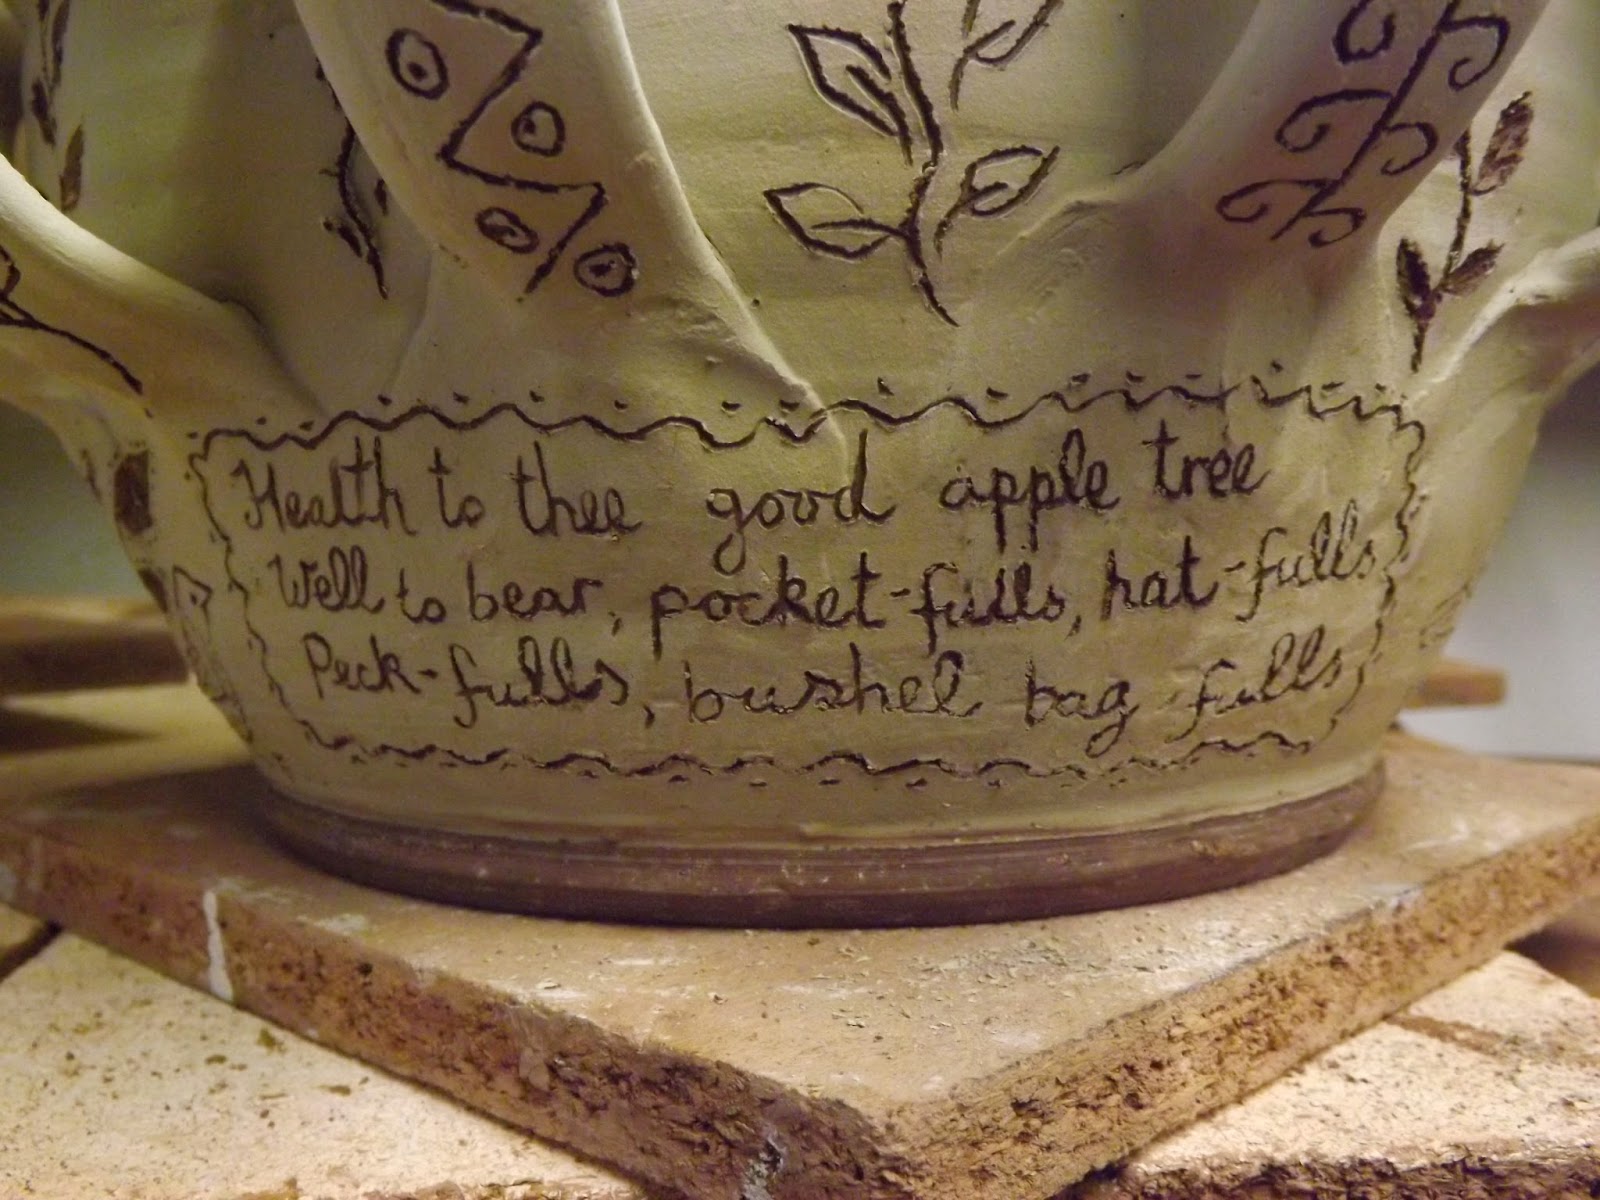 Health to thee good apple tree
Well to bear, pocket-fulls, hat-fulls
Peck-fulls, bushel bag fulls